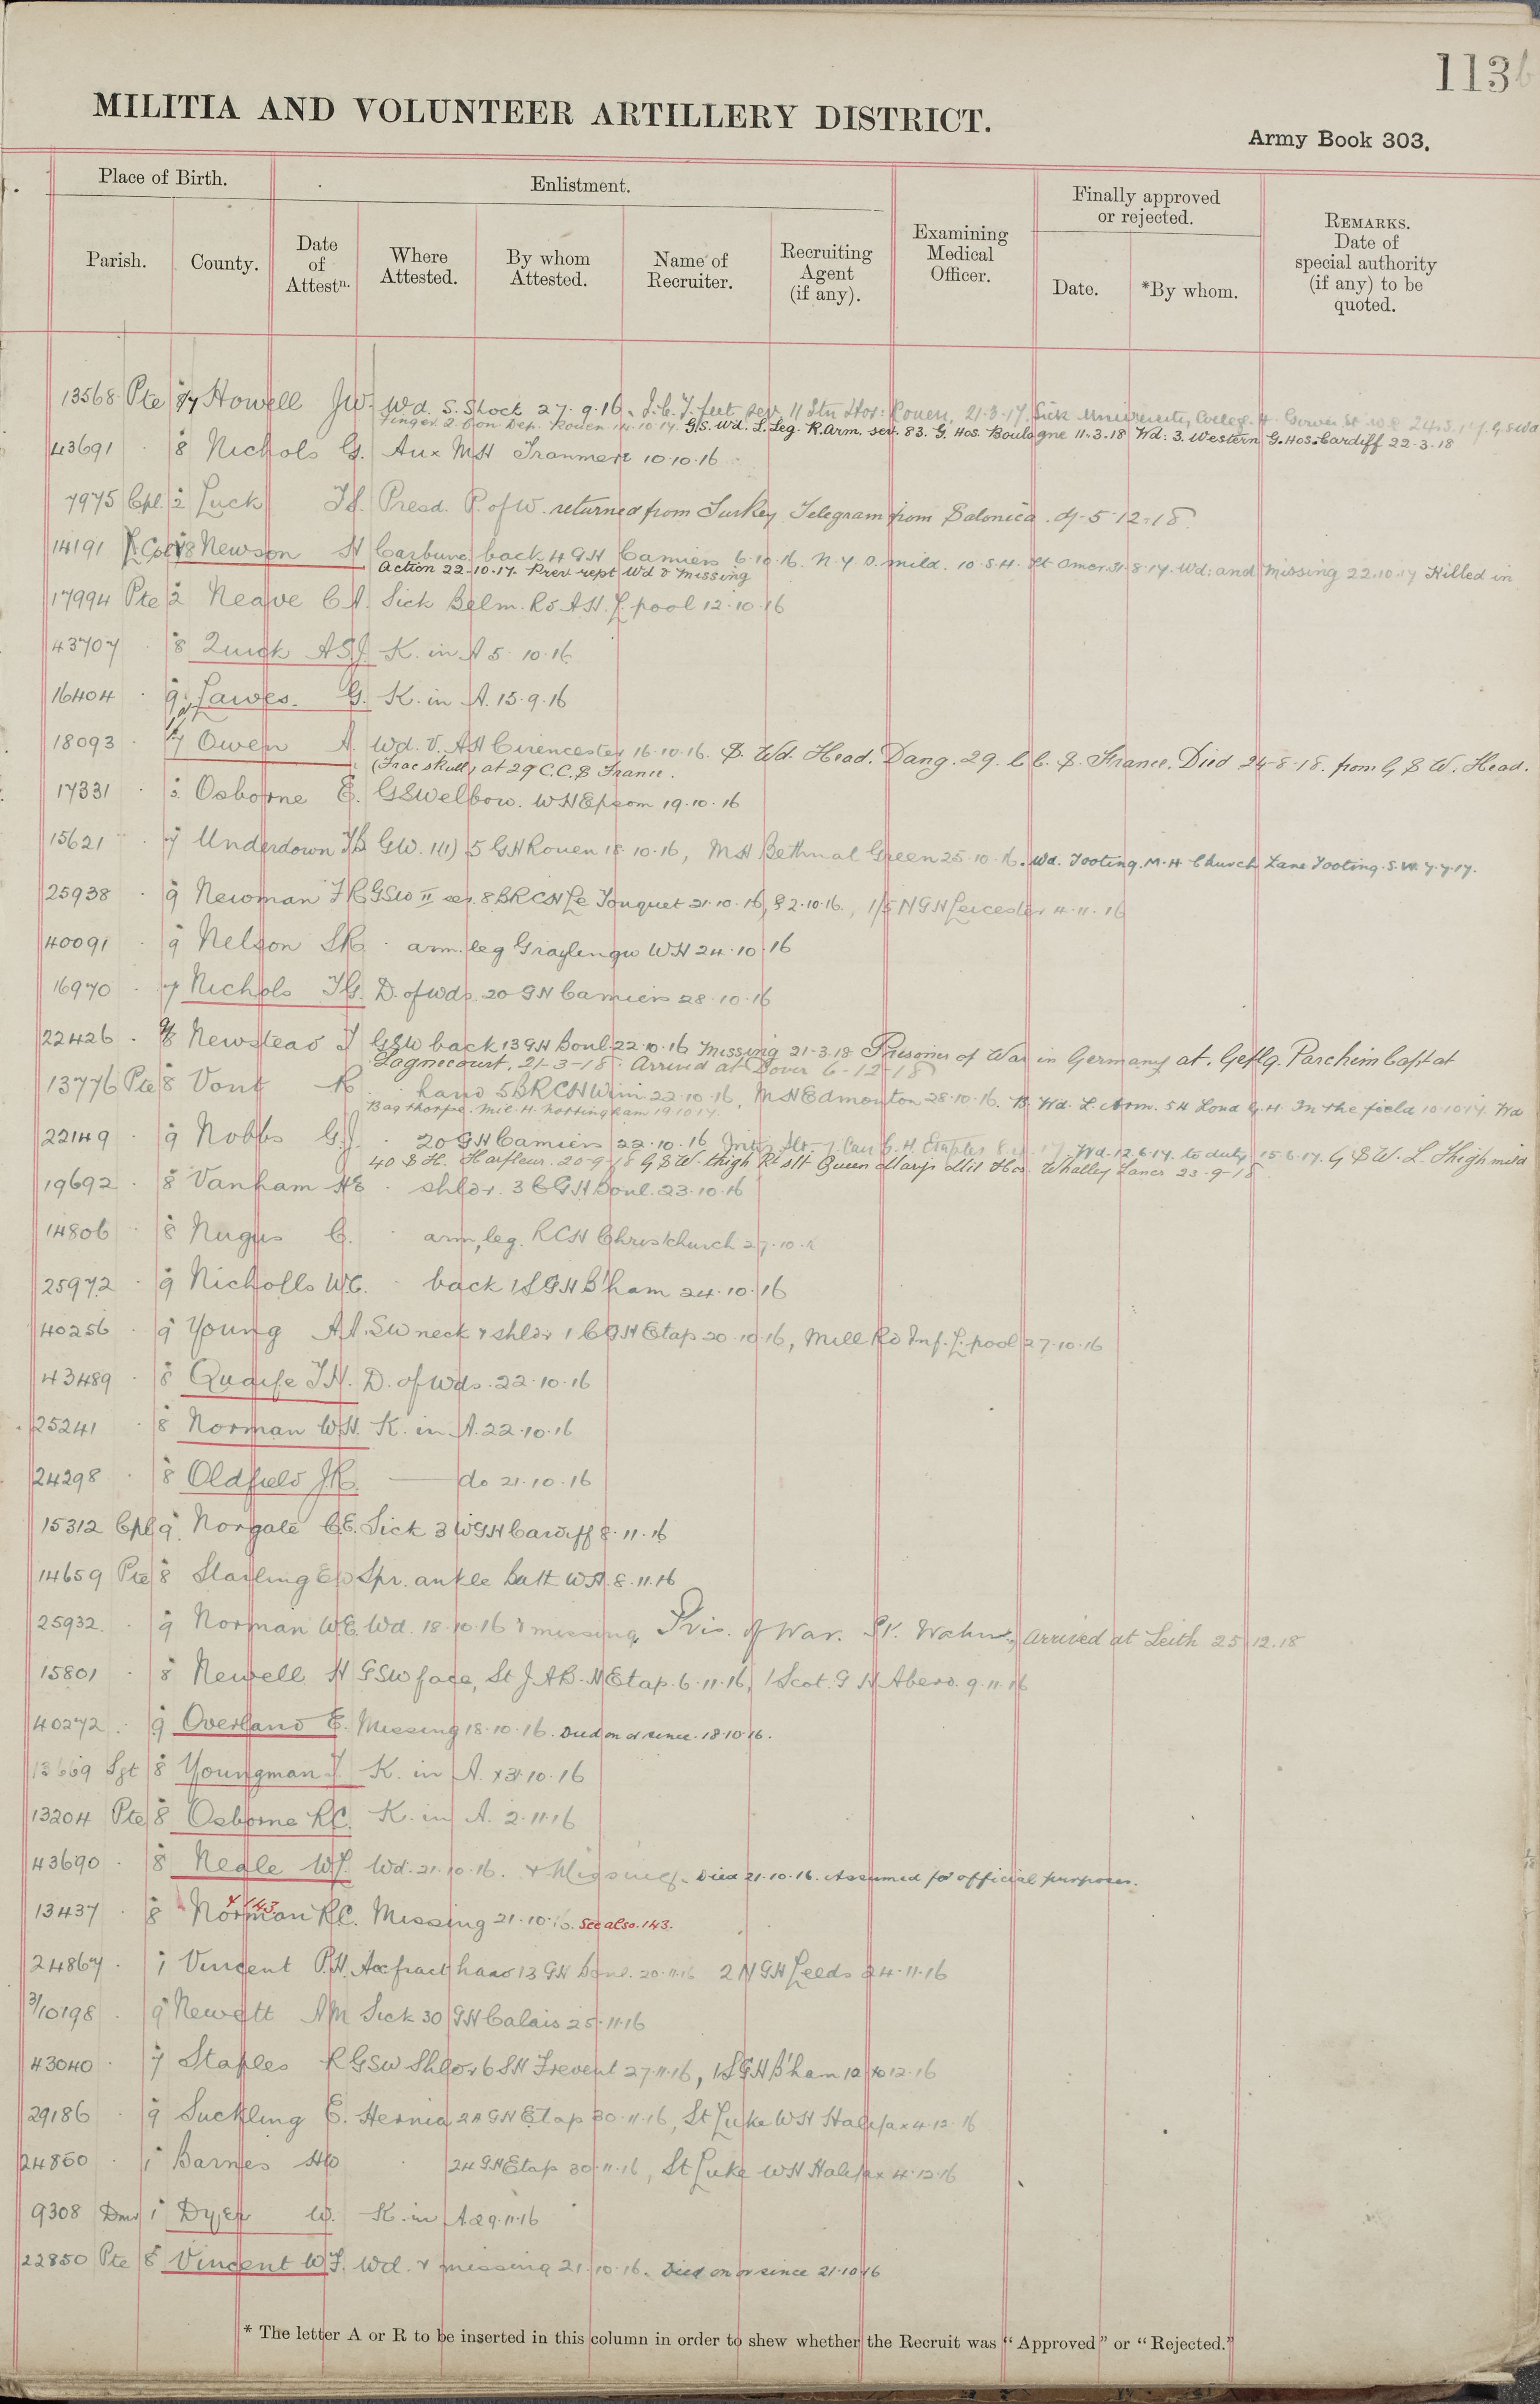 113
MILITIA AND VOLUNTEER ARTILLERY DISTRICT.
Army Book 303.
Place of Birth.
Enlistment.
Finally approved or rejected.
Parish.
County.
Date of Attestn.
Where Attested.
By whom Attested.
Name of Recruiter.
Recruiting Agent (if any).
Examining Medical Officer.
Date.
*By whom.
REMARKS. Date of special authority (if any) to be quoted.
13568 Pte 7 Howell JW. Wd. S. Shock 27.9.16. feet sev. 11 Stn Hos. Rouen, 21.3.17. Sick University College H. Gower St 24.3.17. G.S.Wd
Finger 2 Con Dep. Rouen 14.10.17. G.S. Wd. L. Leg. R. Arm. sev. 83. G. Hos. Boulogne 11.3.18 Wd: 3. Western G. Hos. Cardiff 22-3-18
43691 8 Nichols G. Aux MH Tranmere 10.10.16
7975 Cpl. 2 Luck Presd. P. of W. returned from Turkey Telegram from Salonica. 5-12-18
14191 8 Newson H Carbunc. back 4 GH Camiers 6.10.16. N.Y.D. mild. 10.S.H. St Omer. 8.17. Wd: and Missing 22.10.17 Killed in
Action 22-10-17. Prev rept Wd & missing
17994 Pte 2 Neave C A. Sick Belm. Rd A.H. L'pool 12.10.16
43707 8 Quick ASJ. K. in A 5.10.16
16404 9 Lawes. G. K. in A. 15.9.16
18093 7 Owen A. Wd. V. AH Cirencester 16.10.16. B. Wd. Head. Dang. 29. C.C.S. France. Died 24-8-18. from G S W. Head.
(Frac skull) at 29 C.C.S France.
17331 Osborne E. GSW elbow. WH Epsom 19.10.16
15621 7 Underdown GW. 5 GH Rouen 18.10.16, MH Bethnal Green 25.10.16. Wd. Tooting. M.H Church Lane Tooting. S.W. 7.7.17.
25938 9 Newman FR GSW II sev. 8 BRCH Le Touquet 21.10.16, 1/5 NGH Leicester 4.11.16
40091 9 Nelson SR. arm. leg Graylingw WH 24.10.16
16970 7 Nichols JG. D. of Wds. 20 GH Camiers 28.10.16
22426 Newstead J GSW back 13 GH Boul. 22.10.16 Missing 21-3-18 Prisoner of War in Germany at. Geflg. Parchim Capt at
Lagnecourt, 21-3-18. Arrived at Dover 6-12-18
13776 Pte 8 Vont R hand 5 BRCH Wim 22.10.16, MH Edmonton 28.10.16. B. Wd. L. Arm. 54 Lond G.H. In the field 10.10.17. Wd
Bagthorpe. Mil. H. Nottingham 19.10.17
22149 9 Nobbs G.J. 20 GH Camiers 22.10.16 7 Can G.H. Etaples Wd. 12.6.17. to duty 15.6.17. G S W. L. Thigh mild
40 S H. Harfleur. 20-9-18 G S W. thigh Rt slt Queen Marys Mil Hos. Whalley Lancs 23-9-18
19692 8 Vanham HE shldr. 3 CGH Boul. 23.10.16
14806 8 Nugus C. arm, leg. RCH Christchurch 27.10.16
25972 9 Nicholls W.C. back 1 SGH B'ham 24.10.16
40256 9 Young A.A. SW neck & shldr 1 CGH Etap 20.10.16, Mill Rd Inf. L'pool 27.10.16
43489 8 Quaife J.H. D. of Wds. 22.10.16
25241 8 Norman W.H. K. in A. 22.10.16
24298 8 Oldfield JR. — do 21.10.16
15312 Cpl 9 Norgate C.E. Sick 3 WGH Cardiff 8.11.16
14659 Pte 8 Starling EW Spr. ankle Batt WH. 8.11.16
25932 9 Norman W.E. Wd. 18.10.16 & missing, Pris. of War. Wahn, arrived at Leith 25.12.18
15801 8 Newell H GSW face, St J.A.B. H Etap. 6.11.16, 1 Scot. G H Aberd. 9.11.16
40272 9 Overland E. Missing 18.10.16. Died on or since 18.10.16.
13669 Sgt 8 Youngman J. K. in A. 10.16
13204 Pte 8 Osborne R.C. K. in A. 2.11.16
43690 8 Neale W.J. Wd. 21.10.16. & Missing. Died 21.10.16. Assumed for official purposes.
13437 8 Norman R.C. Missing 21.10.16. See also. 143.
24867 1 Vincent P.H. Acc fract hand 13 GH Boul. 20.11.16 2 NGH Leeds 24.11.16
3/10198 9 Newett AM Sick 30 GH Calais 25.11.16
43040 7 Staples R GSW Shldr 6 SH Frevent 27.11.16, 1 SGH B'ham 12.16
29186 9 Suckling E. Hernia 24 GH Etap 30.11.16, St Luke WH Halifax 4.12.16
24850 1 Barnes HW 24 GH Etap 30.11.16, St Luke WH Halifax 4.12.16
9308 Dmr 1 Dyer W. K. in A 29.11.16
22850 Pte 8 Vincent W.F. Wd. & missing 21.10.16. Died on or since 21.10.16
* The letter A or R to be inserted in this column in order to shew whether the Recruit was "Approved" or "Rejected."